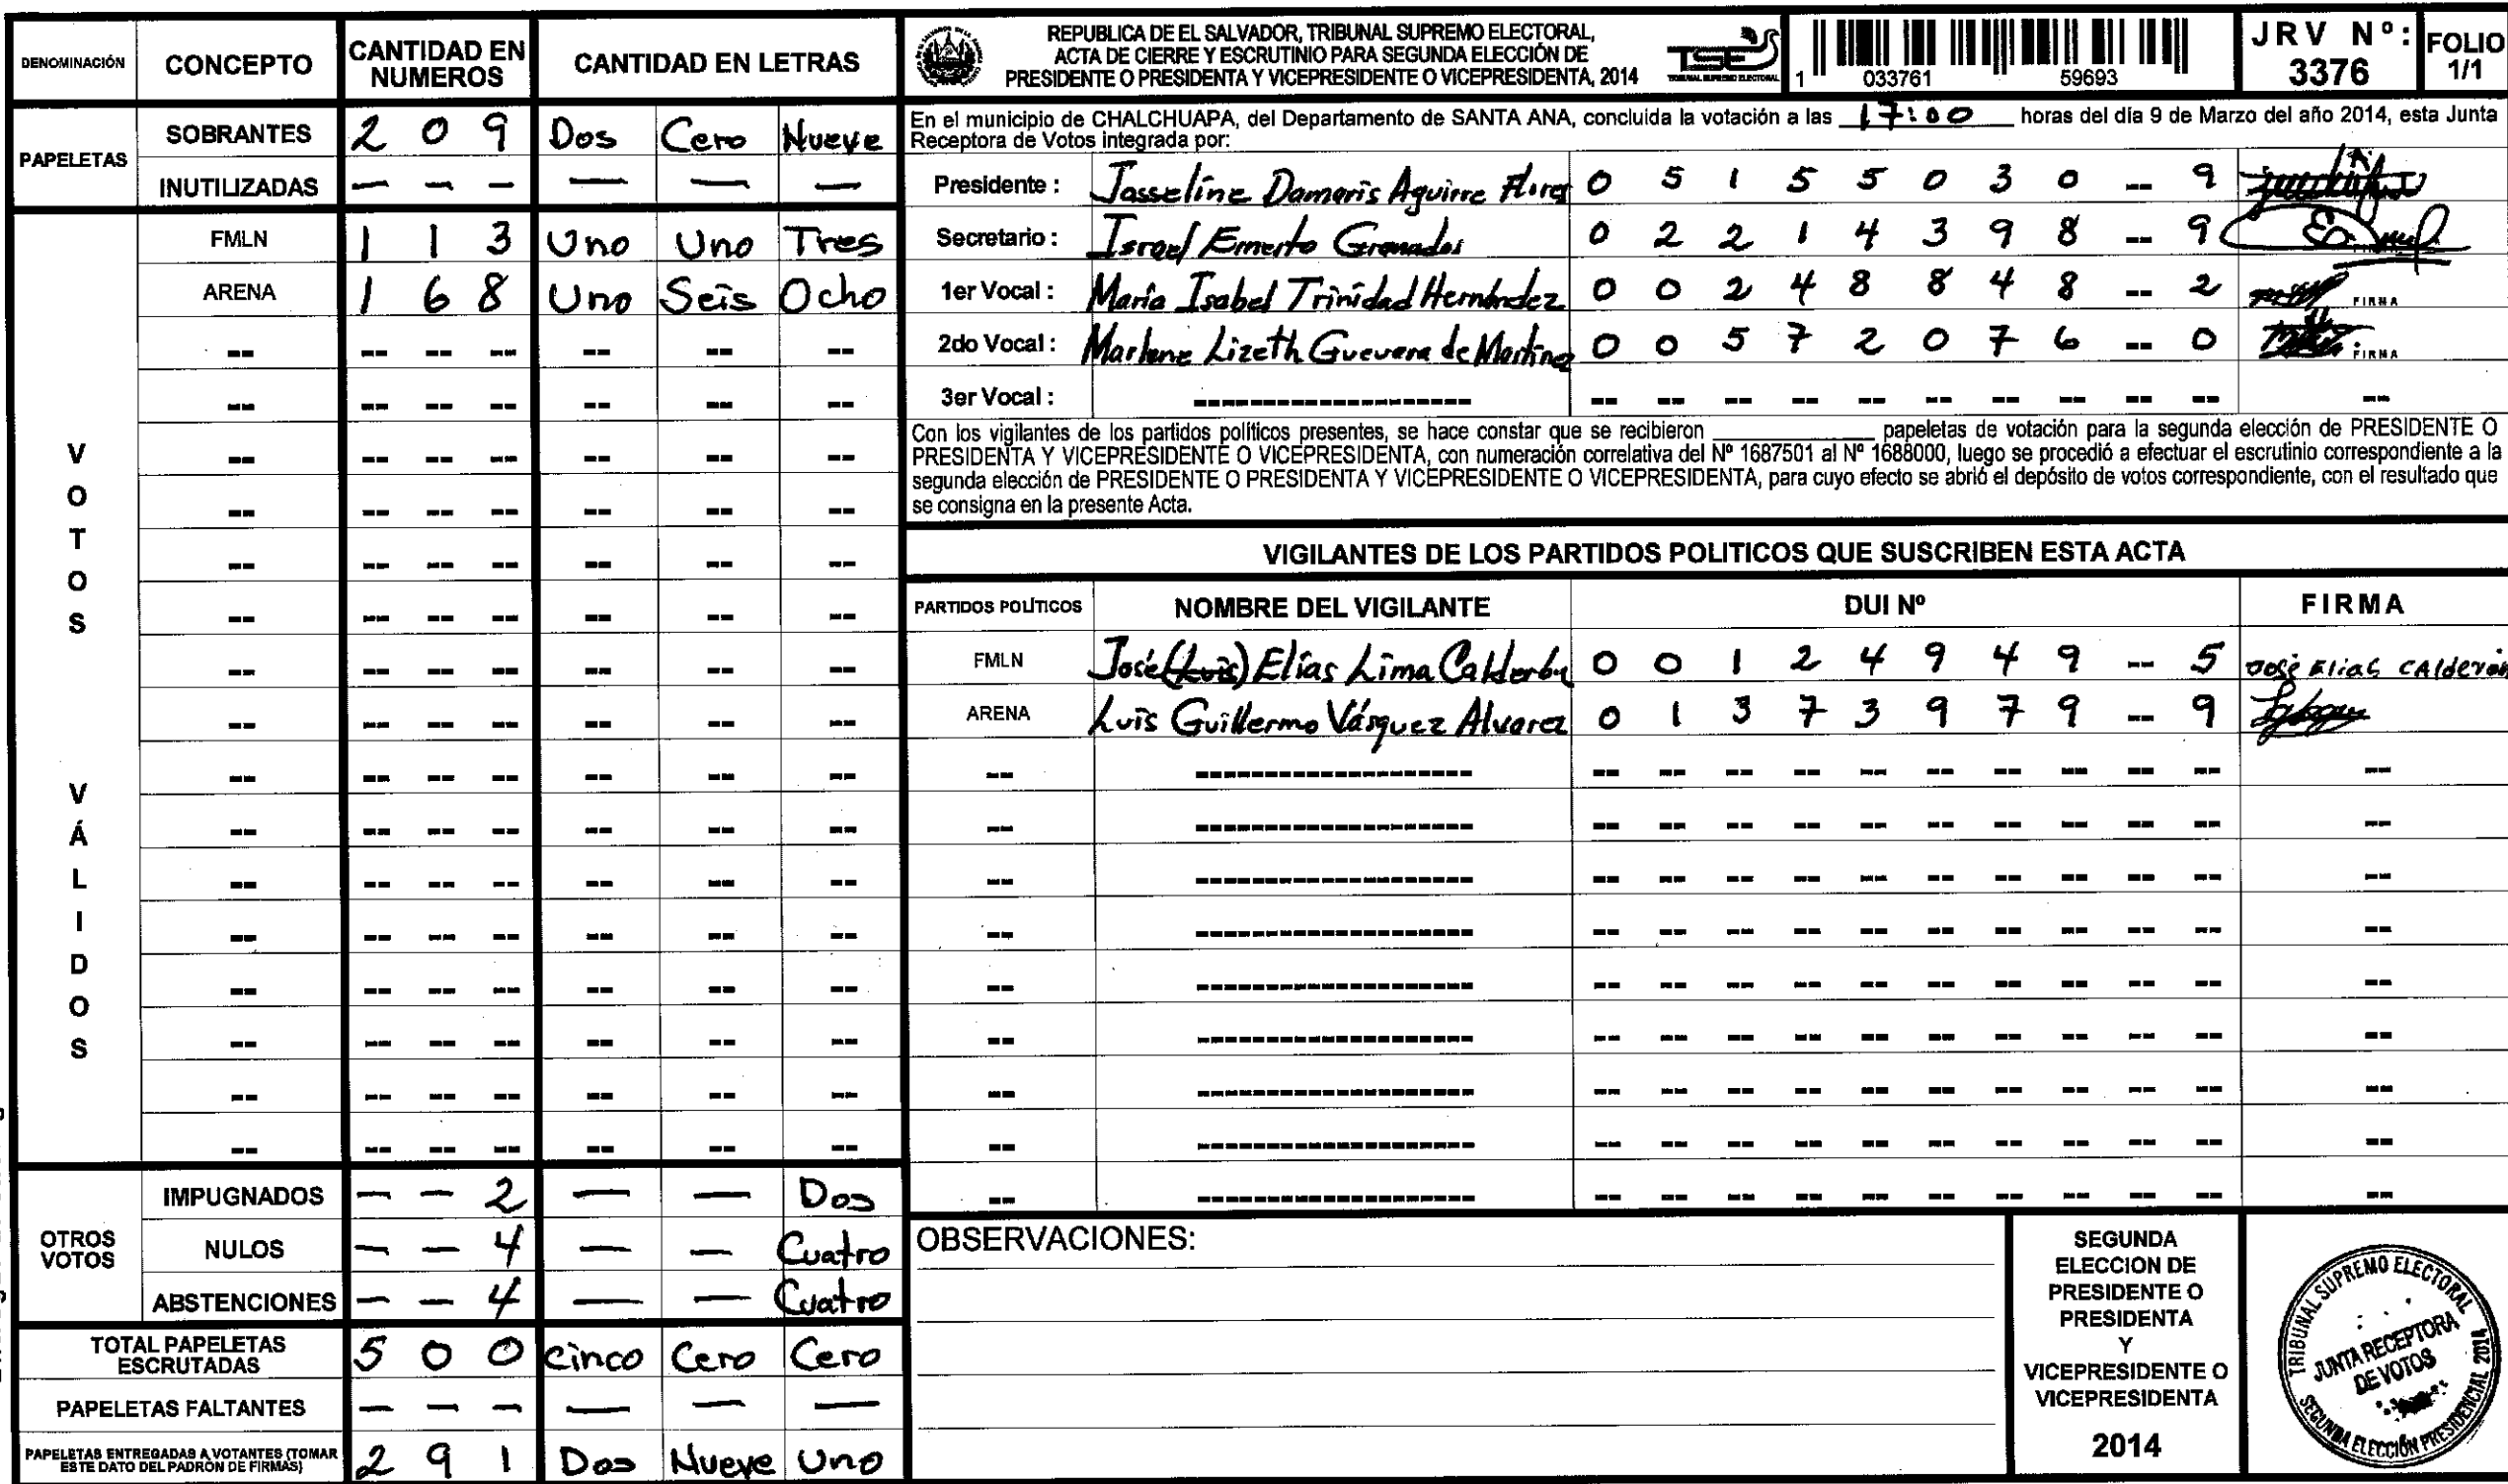 DENOMINACIÓN CONCEPTO CANTIDAD EN NUMEROS CANTIDAD EN LETRAS
PAPELETAS
SOBRANTES 2 0 9 Dos Cero Nueve
INUTILIZADAS — — — — — —
VOTOS VÁLIDOS
FMLN 1 1 3 Uno Uno Tres
ARENA 1 6 8 Uno Seis Ocho
OTROS VOTOS
IMPUGNADOS — — 2 — — Dos
NULOS — — 4 — — Cuatro
ABSTENCIONES — — 4 — — Cuatro
TOTAL PAPELETAS ESCRUTADAS 5 0 0 Cinco Cero Cero
PAPELETAS FALTANTES — — — — — —
PAPELETAS ENTREGADAS A VOTANTES (TOMAR ESTE DATO DEL PADRÓN DE FIRMAS) 2 9 1 Dos Nueve Uno
REPUBLICA DE EL SALVADOR, TRIBUNAL SUPREMO ELECTORAL,
ACTA DE CIERRE Y ESCRUTINIO PARA SEGUNDA ELECCIÓN DE
PRESIDENTE O PRESIDENTA Y VICEPRESIDENTE O VICEPRESIDENTA, 2014
TSE
TRIBUNAL SUPREMO ELECTORAL
1 033761 59693
JRV Nº: 3376
FOLIO 1/1
En el municipio de CHALCHUAPA, del Departamento de SANTA ANA, concluida la votación a las 17:00 horas del día 9 de Marzo del año 2014, esta Junta
Receptora de Votos integrada por:
Presidente : Josseline Damaris Aguirre Flores 0 5 1 5 5 0 3 0 -- 9
Secretario : Israel Ernesto Granados 0 2 2 1 4 3 9 8 -- 9
1er Vocal : María Isabel Trinidad Hernández 0 0 2 4 8 8 4 8 -- 2 FIRMA
2do Vocal : Marlene Lizeth Guevara de Martinez 0 0 5 7 2 0 7 6 -- 0 FIRMA
3er Vocal :
Con los vigilantes de los partidos políticos presentes, se hace constar que se recibieron ____ papeletas de votación para la segunda elección de PRESIDENTE O
PRESIDENTA Y VICEPRESIDENTE O VICEPRESIDENTA, con numeración correlativa del Nº 1687501 al Nº 1688000, luego se procedió a efectuar el escrutinio correspondiente a la
segunda elección de PRESIDENTE O PRESIDENTA Y VICEPRESIDENTE O VICEPRESIDENTA, para cuyo efecto se abrió el depósito de votos correspondiente, con el resultado que
se consigna en la presente Acta.
VIGILANTES DE LOS PARTIDOS POLITICOS QUE SUSCRIBEN ESTA ACTA
PARTIDOS POLÍTICOS NOMBRE DEL VIGILANTE DUI Nº FIRMA
FMLN José (Luis) Elías Lima Calderón 0 0 1 2 4 9 4 9 -- 5 José Elias CAlderón
ARENA Luis Guillermo Vásquez Alvarez 0 1 3 7 3 9 7 9 -- 9
OBSERVACIONES:
SEGUNDA
ELECCION DE
PRESIDENTE O
PRESIDENTA
Y
VICEPRESIDENTE O
VICEPRESIDENTA
2014
TRIBUNAL SUPREMO ELECTORAL
JUNTA RECEPTORA
DE VOTOS
SEGUNDA ELECCIÓN PRESIDENCIAL 2014